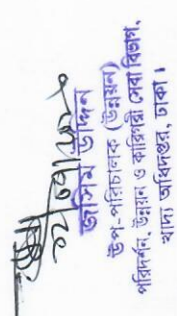 জসিম উদ্দিন
উপ-পরিচালক (উন্নয়ন)
পরিদর্শন, উন্নয়ন ও কারিগরী সেবা বিভাগ,
খাদ্য অধিদপ্তর, ঢাকা।